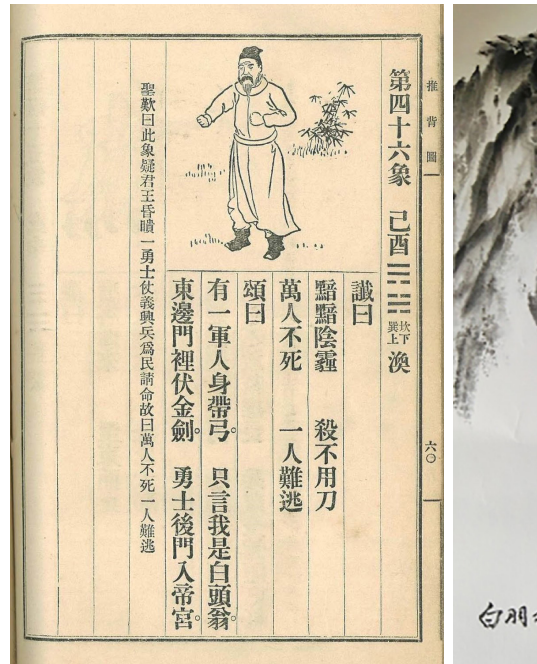 推背圖
六〇
第四十六象 己酉 ䷺ 坎下巽上 渙
讖曰
黯黯陰霾 殺不用刀
萬人不死 一人難逃
頌曰
有一軍人身帶弓。只言我是白頭翁。
東邊門裡伏金劍。勇士後門入帝宮。
聖歎曰此象疑君王昏瞶一勇士仗義興兵爲民請命故曰萬人不死一人難逃
白羽